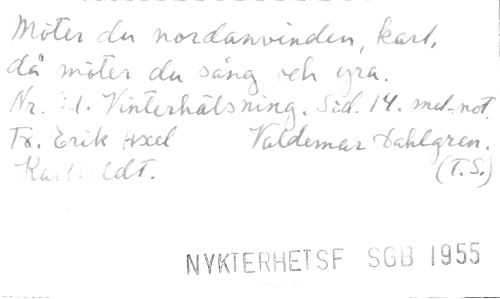 Möter du nordanvinden, karl,
då möter du sång och yra.
Nr. 1. Vinterhälsning. Sid. 14. mel.-not.
Fr. Erik Axel Valdemar Dahlgren.
(T.S.)
NYKTERHETSF SGB 1955